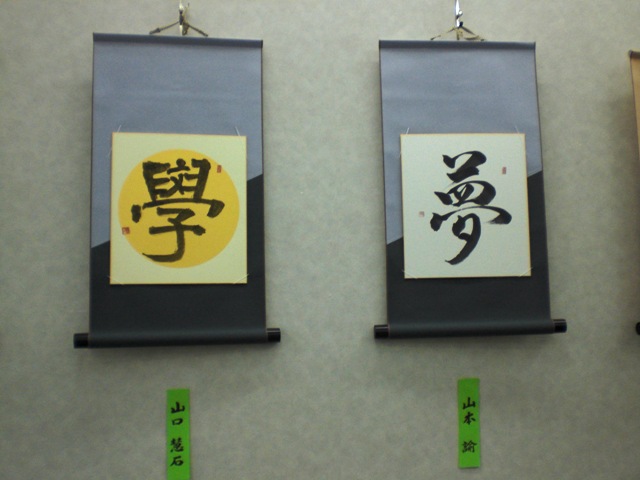 學
夢
山口 慧石
山本 諭